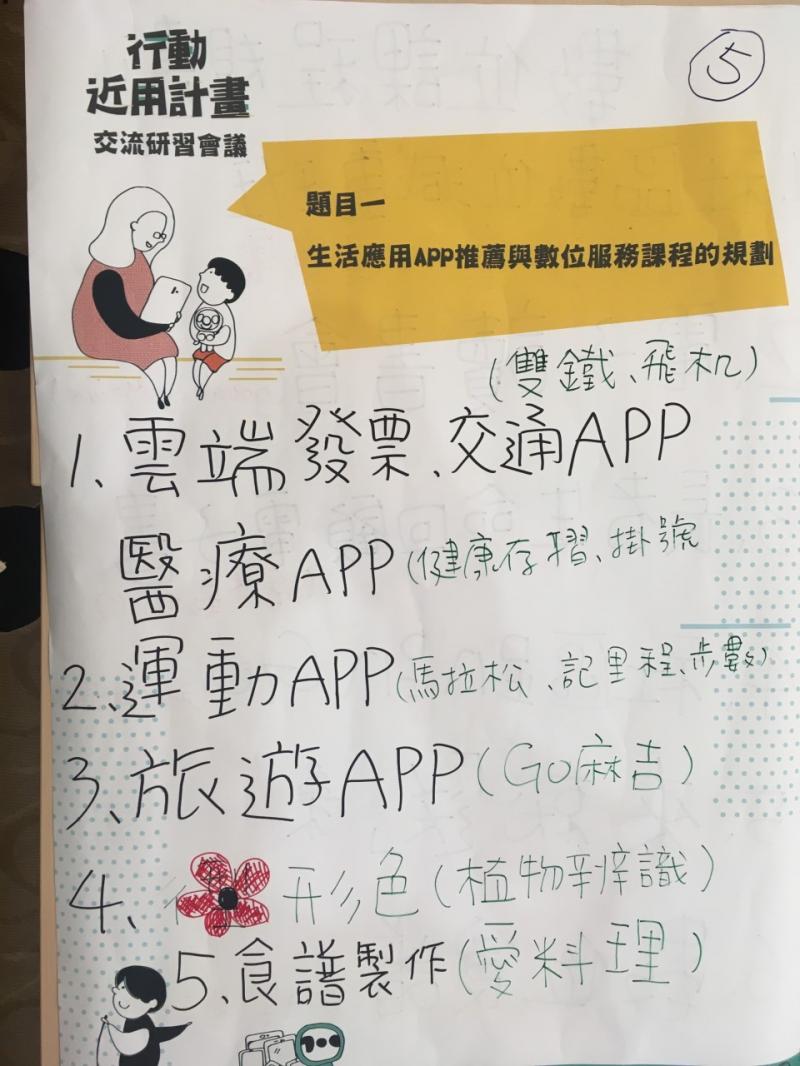 行動
近用計畫
交流研習會議
⑤
題目一
生活應用APP推薦與數位服務課程的規劃
(雙鐵、飛机)
1、雲端發票、交通APP
醫療APP(健康存摺、掛號
2、運動APP(馬拉松、記里程、步數)
3、旅遊APP(Go麻吉)
4、形色(植物辨識)
5、食譜製作(愛料理)